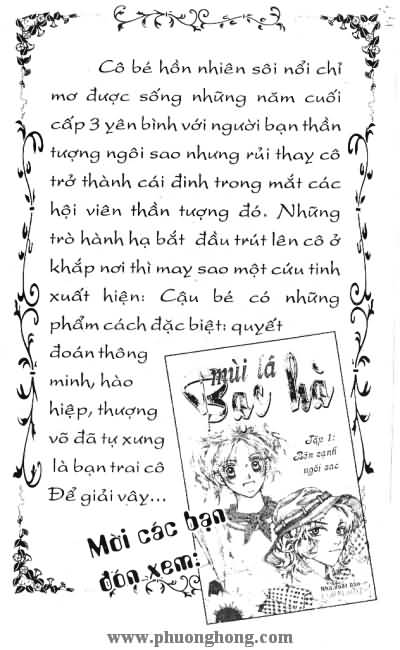 Cô bé hồn nhiên sôi nổi chỉ
mơ được sống những năm cuối
cấp 3 yên bình với người bạn thần
tượng ngôi sao nhưng rủi thay cô
trở thành cái đinh trong mắt các
hội viên thần tượng đó. Những
trò hành hạ bắt đầu trút lên cô ở
khắp nơi thì may sao một cứu tinh
xuất hiện: Cậu bé có những
phẩm cách đặc biệt: quyết
đoán thông
minh, hào
hiệp, thượng
võ đã tự xưng
là bạn trai cô
Để giải vây...
mùi lá
Bạc hà
Tập 1:
Bên cạnh
ngôi sao
Mời các bạn
đón xem:
Nhà xuất bản
www.phuonghong.com